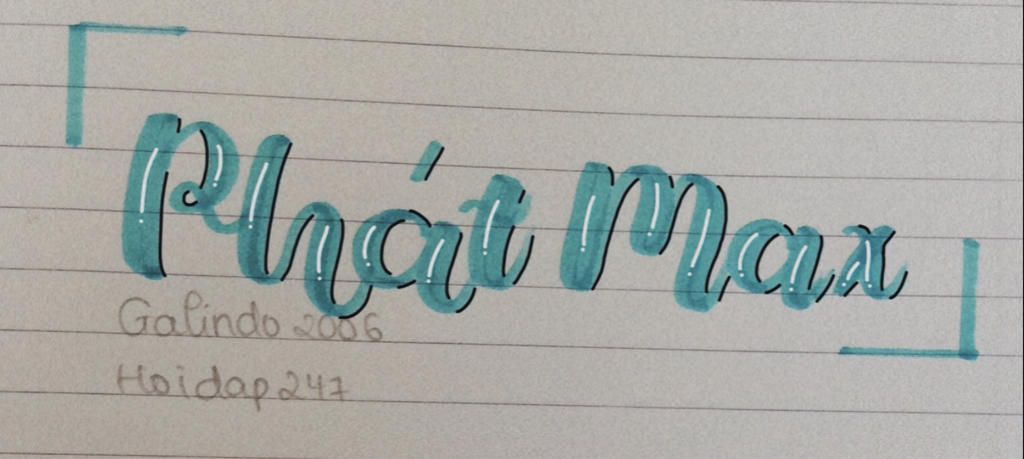 Phát Max
Galindo 2006
Hoidap247